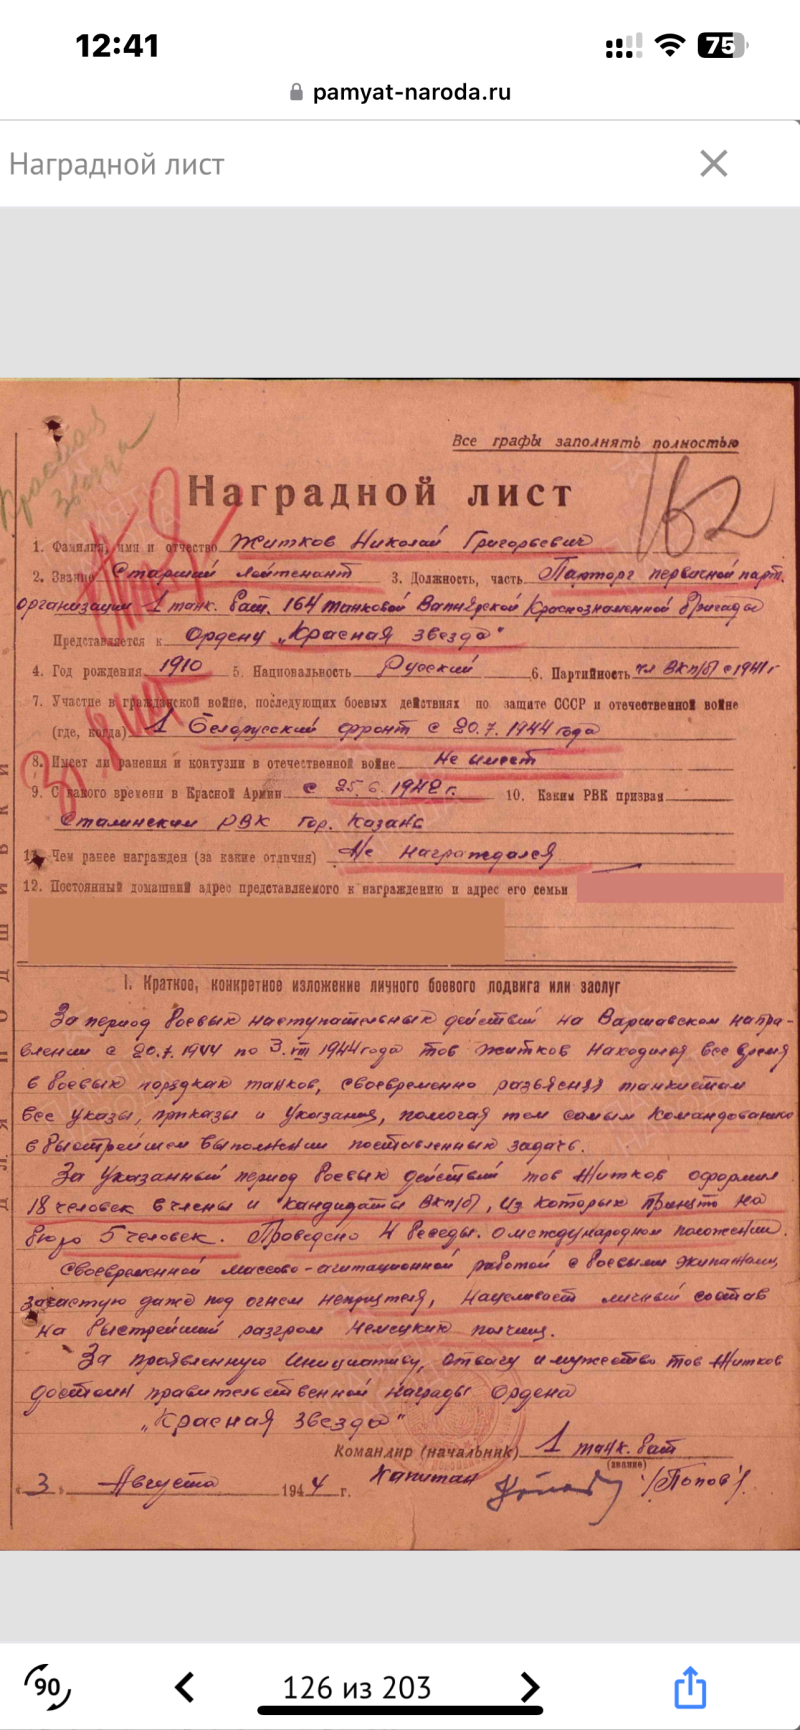 12:41
75
pamyat-naroda.ru
Наградной лист
Красная
звезда
Все графы заполнять полностью
Наградной лист
162
1. Фамилия, имя и отчество Житков Николай Григорьевич
2. Звание Старший лейтенант 3. Должность, часть Парторг первичной парт.
организации 1 танк. бат. 164 танковой Краснознаменной бригады
Представляется к Ордену „Красная звезда"
4. Год рождения 1910 5. Национальность Русский 6. Партийность чл ВКп/б/ с 1941 г
7. Участие в гражданской войне, последующих боевых действиях по защите СССР и отечественной войне
(где, когда) 1 Белорусский фронт с 20.7.1944 года
8. Имеет ли ранения и контузии в отечественной войне Не имеет
9. С какого времени в Красной Армии с 25.6.1942 г. 10. Каким РВК призван
Сталинским РВК гор. Казань
11. Чем ранее награжден (за какие отличия) Не награждался
12. Постоянный домашний адрес представляемого к награждению и адрес его семьи
1. Краткое, конкретное изложение личного боевого подвига или заслуг
За период боевых наступательных действий на Варшавском напра-
влении с 20.7.1944 по 3.VIII 1944 года тов Житков находился все время
в боевых порядках танков, своевременно разъясняя танкистам
все указы, приказы и указания, помогая тем самым командованию
в быстрейшем выполнении поставленных задачь.
За указанный период боевых действий тов Житков оформил
18 человек в члены и кандидаты ВКп/б/, из которых принято на
бюро 5 человек. Проведено 4 беседы. о международном положении.
Своевременной массово-агитационной работой с боевыми экипажами,
зачастую даже под огнем неприятеля, нацеливает личный состав
на быстрейший разгром немецких полчищ.
За проявленную инициативу, отвагу и мужество тов Житков
достоин правительственной награды Ордена
„Красная звезда"
Командир (начальник) 1 танк. бат
(звание)
Капитан /Попов/
„ 3 " Августа 1944 г.
ДЛЯ ПОДШИВКИ
90
126 из 203